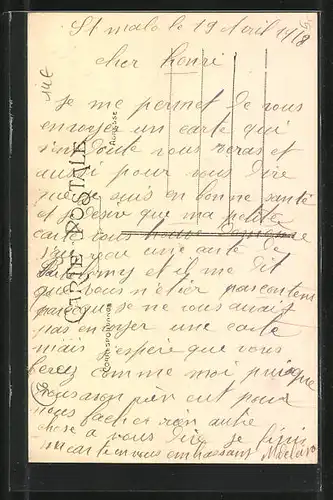 St malo le 19 Avril 1918
cher Henri
Je me permet de vous
envoyer un carte qui
sans doute vous et
aussi pour vous dire
que je suis en bonne santé
et je désire que ma petite
carte vous
une carte de
et il me dit
que vous n'étier pas content
parceque je ne vous avais
pas envoyer une carte
mais j'espère que vous
ferez comme moi puisque
nous avon rien eut pour
nous facher rien autre
chose a vous dire je fini
ma carte en vous embrassant
CARTE POSTALE
CORRESPONDANCE
ADRESSE